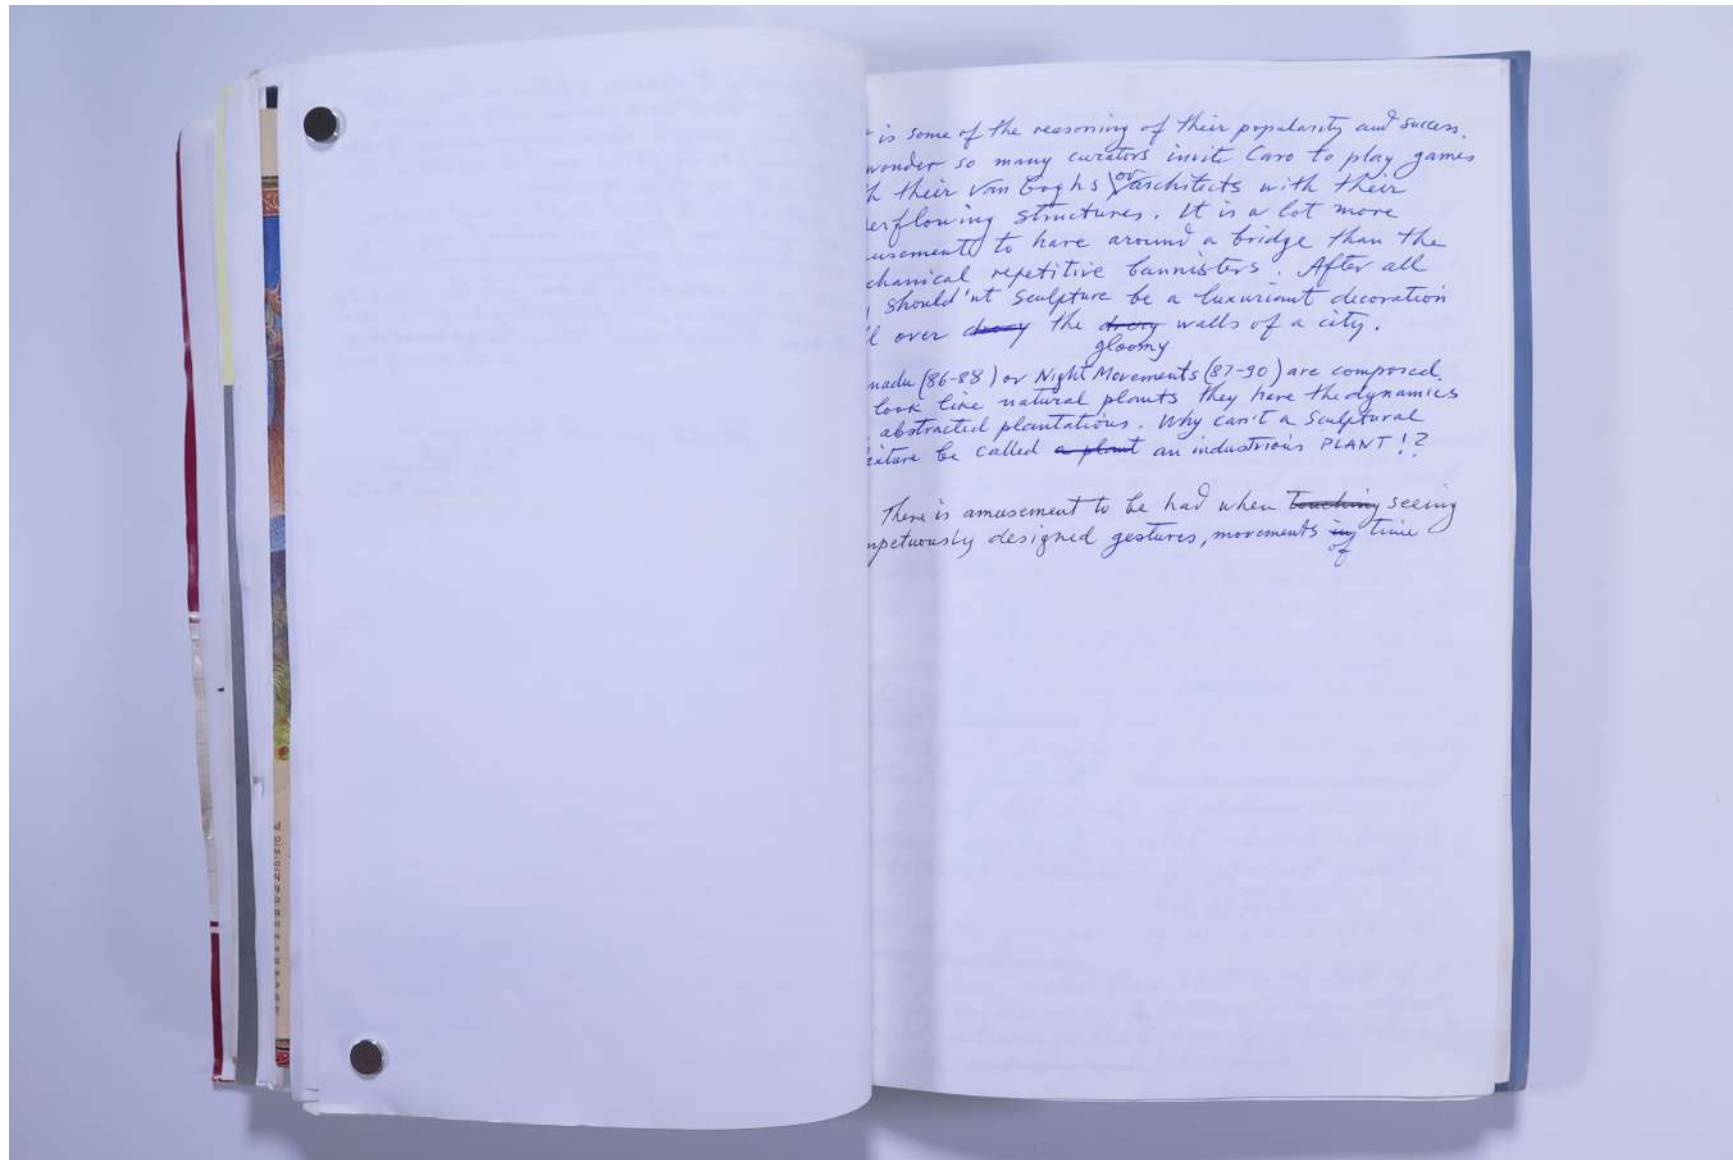 is some of the reasoning of their popularity and success.
wonder so many curators invite Caro to play games
h their Van Goghs or architects with their
erflowing structures. It is a lot more
usement to have around a bridge than the
chanical repetitive bannisters. After all
should'nt Sculpture be a luxuriant decoration
l over the drery walls of a city.
gloomy
nadu (86-88) or Night Movements (87-90) are composed.
look like natural plants they have the dynamics
abstracted plantations. Why can't a Sculptural
ixture be called a plant an industrious PLANT!?
There is amusement to be had when touching seeing
mpetuously designed gestures, movements in time
of